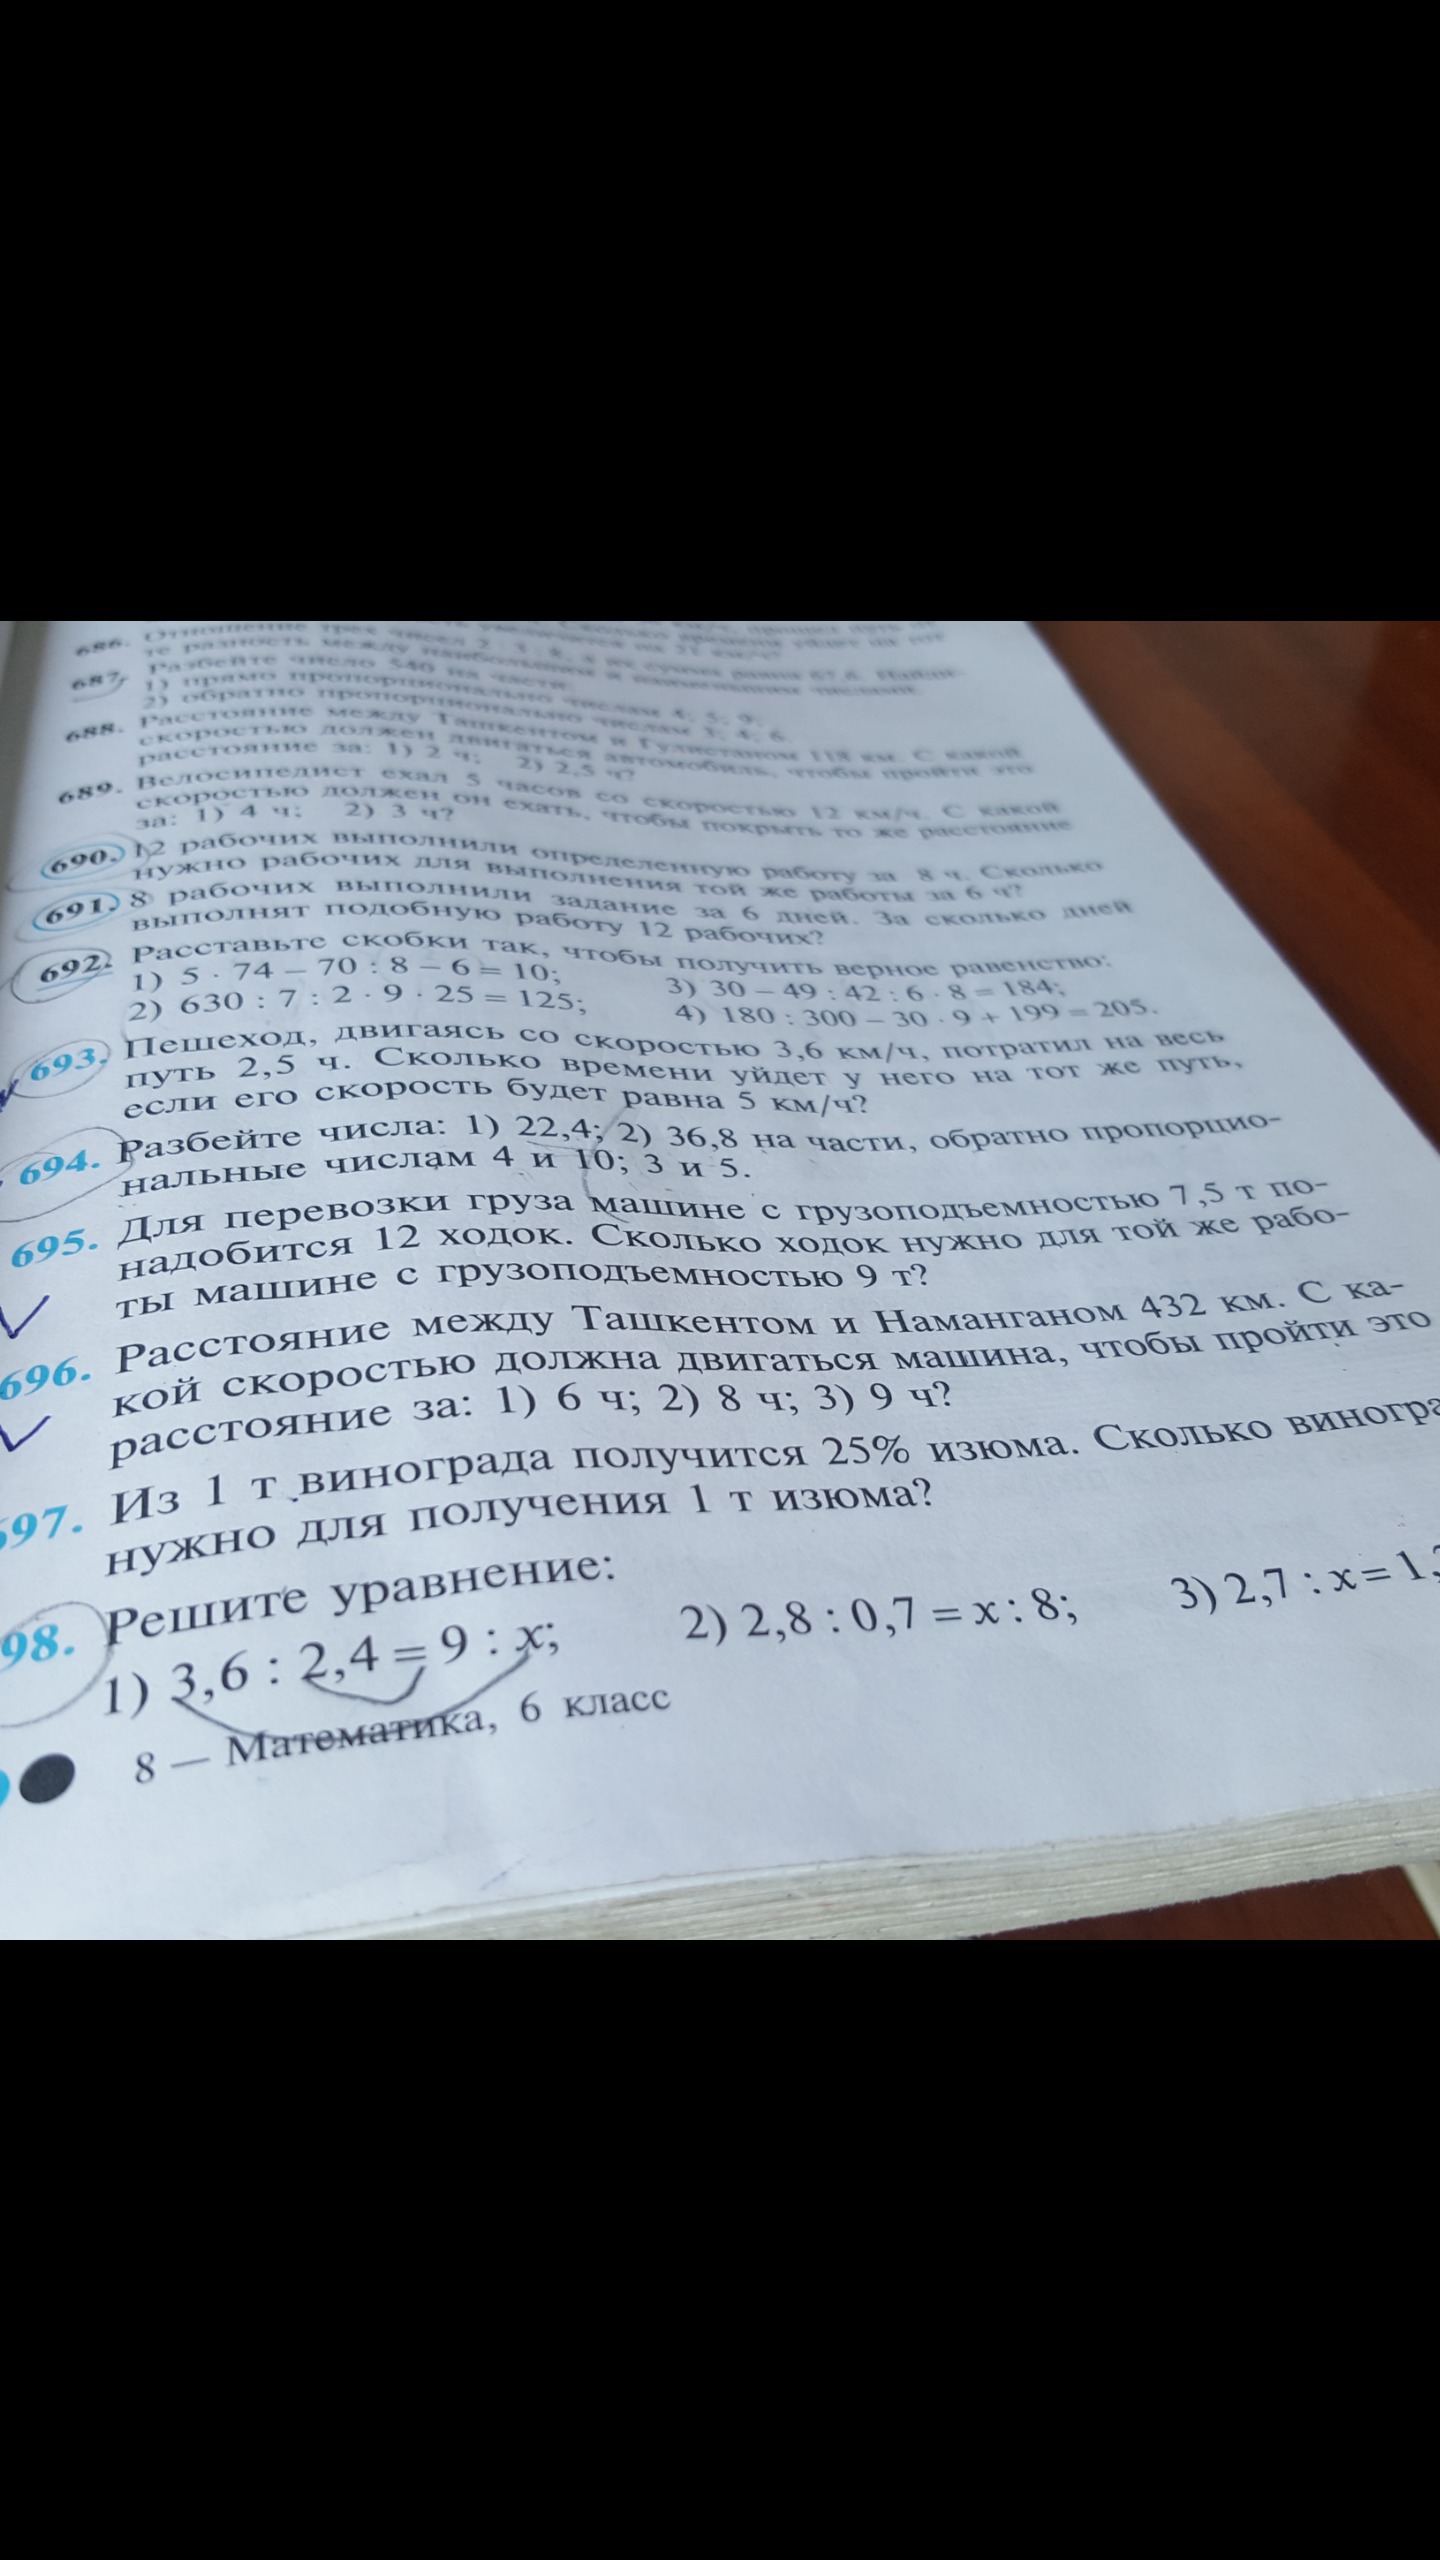 686. Отношение трех чисел 2 : 3 : 8, а их сумма равна
те разность между наибольшим и наименьшим числами.
687. Разбейте число 540 на части:
1) прямо пропорционально числам 4; 5; 9;
2) обратно пропорционально числам 3; 4; 6.
688. Расстояние между Ташкентом и Гулистаном 118 км. С какой
скоростью должен двигаться автомобиль, чтобы пройти это
расстояние за: 1) 2 ч; 2) 2,5 ч?
689. Велосипедист ехал 5 часов со скоростью 12 км/ч. С какой
скоростью должен он ехать, чтобы покрыть то же расстояние
за: 1) 4 ч; 2) 3 ч?
690. 12 рабочих выполнили определенную работу за 8 ч. Сколько
нужно рабочих для выполнения той же работы за 6 ч?
691. 8 рабочих выполнили задание за 6 дней. За сколько дней
выполнят подобную работу 12 рабочих?
692. Расставьте скобки так, чтобы получить верное равенство:
1) 5 · 74 – 70 : 8 – 6 = 10; 3) 30 – 49 : 42 : 6 · 8 = 184;
2) 630 : 7 : 2 · 9 · 25 = 125; 4) 180 : 300 – 30 · 9 + 199 = 205.
693. Пешеход, двигаясь со скоростью 3,6 км/ч, потратил на весь
путь 2,5 ч. Сколько времени уйдет у него на тот же путь,
если его скорость будет равна 5 км/ч?
694. Разбейте числа: 1) 22,4; 2) 36,8 на части, обратно пропорцио-
нальные числам 4 и 10; 3 и 5.
695. Для перевозки груза машине с грузоподъемностью 7,5 т по-
надобится 12 ходок. Сколько ходок нужно для той же рабо-
ты машине с грузоподъемностью 9 т?
696. Расстояние между Ташкентом и Наманганом 432 км. С ка-
кой скоростью должна двигаться машина, чтобы пройти это
расстояние за: 1) 6 ч; 2) 8 ч; 3) 9 ч?
697. Из 1 т винограда получится 25% изюма. Сколько виногра
нужно для получения 1 т изюма?
98. Решите уравнение:
1) 3,6 : 2,4 = 9 : x; 2) 2,8 : 0,7 = x : 8; 3) 2,7 : x = 1,
8 — Математика, 6 класс